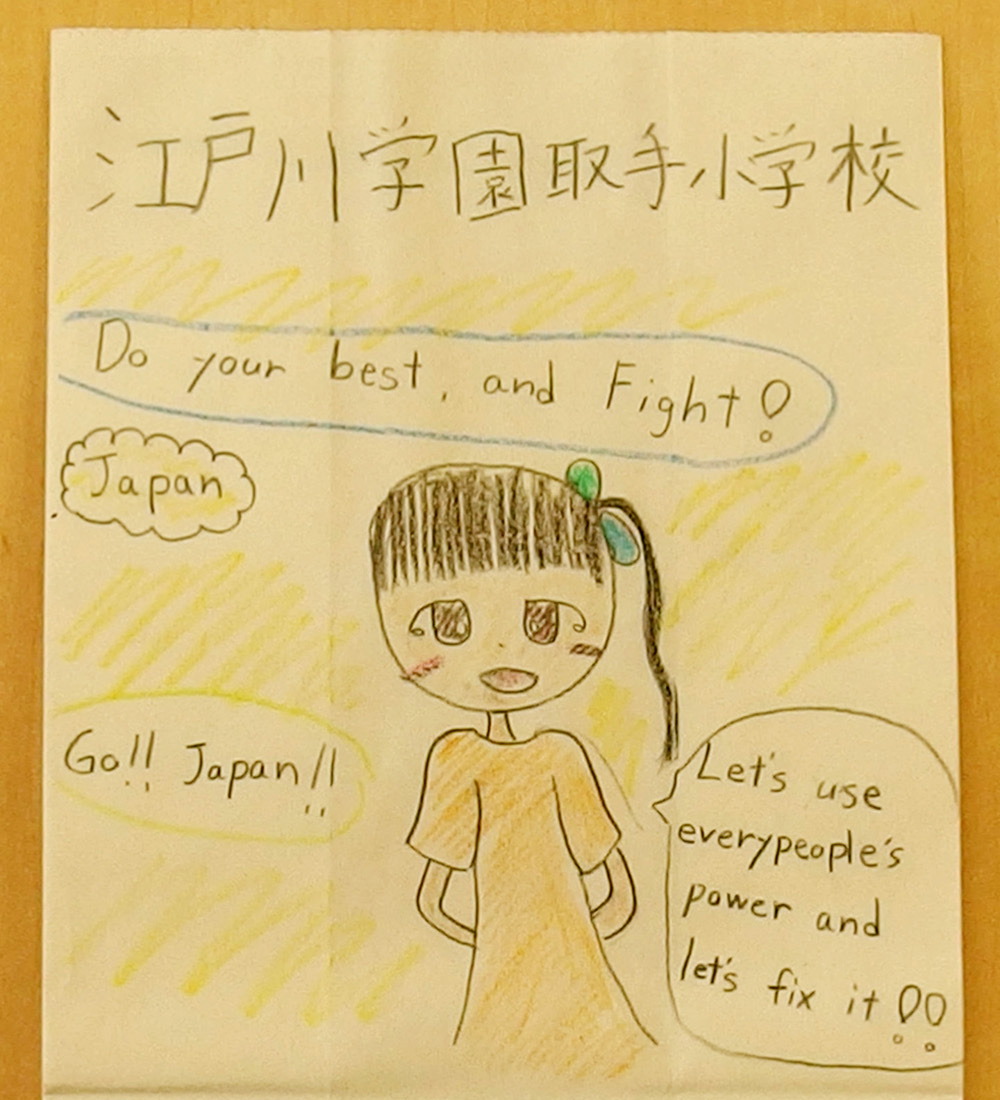 江戸川学園取手小学校
Do your best, and Fight!
Japan
Go!! Japan!!
Let's use
everypeople's
power and
let's fix it!!